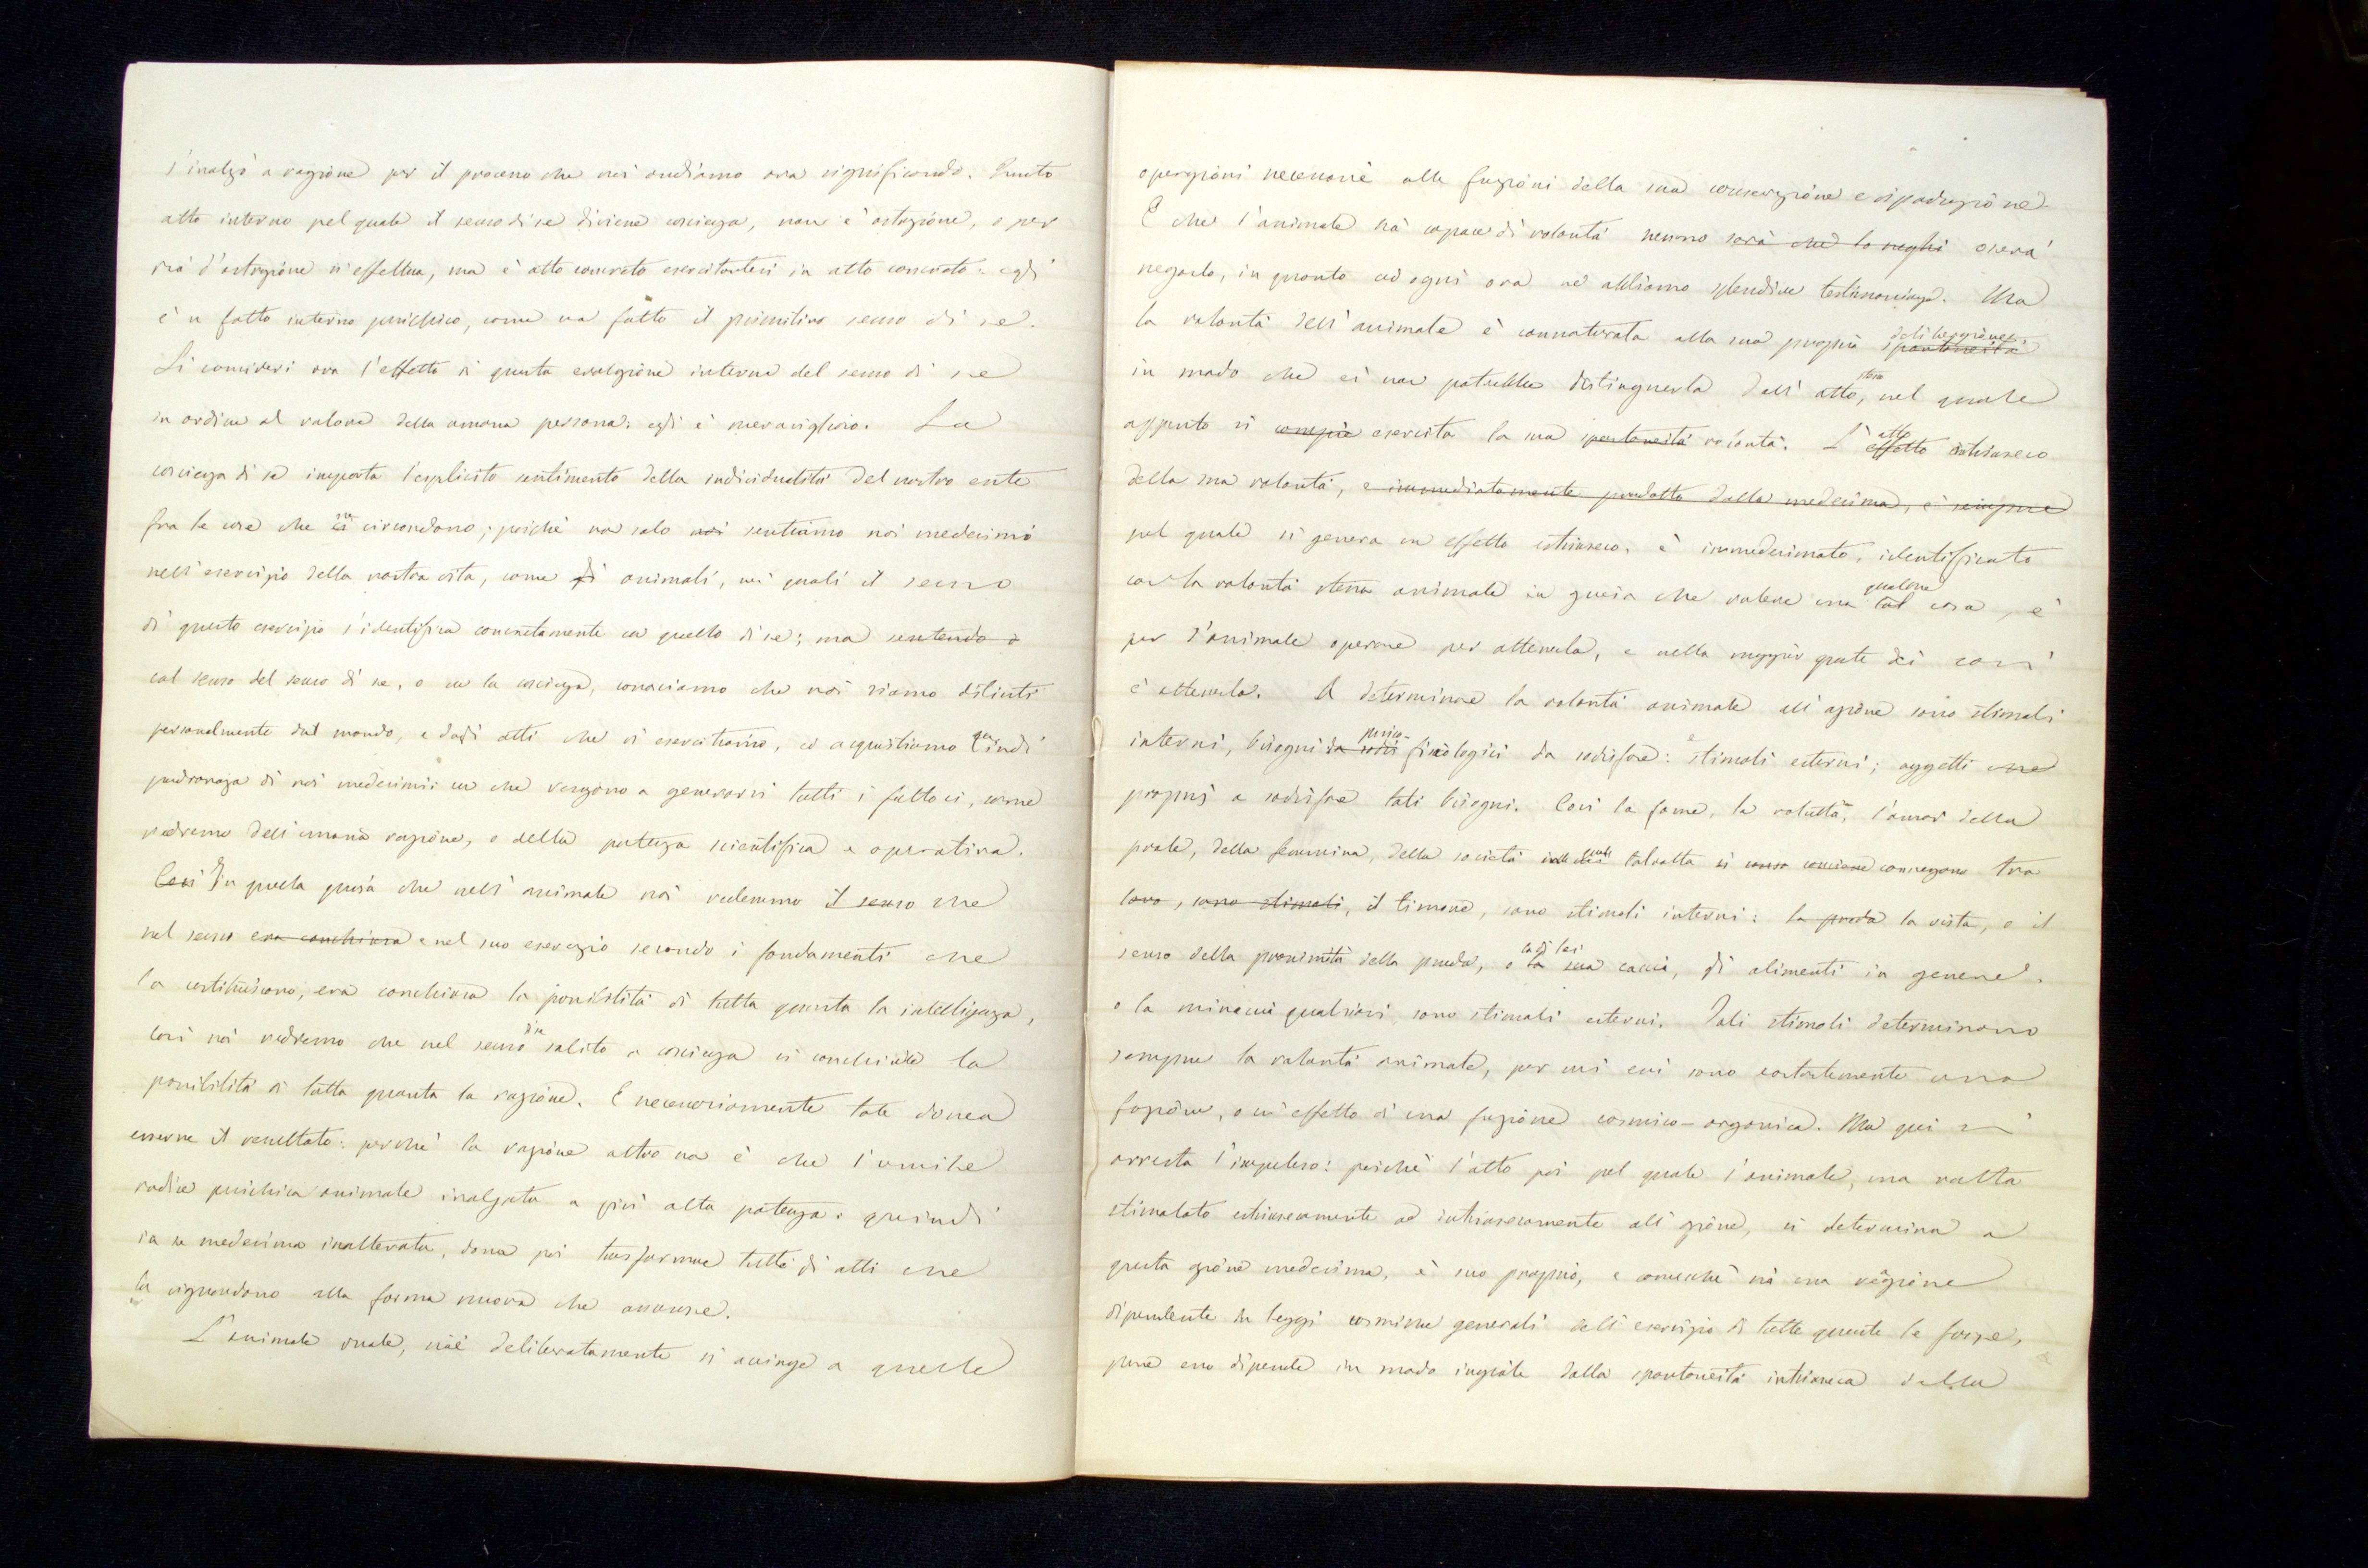 s'inalzò a ragione per il processo che noi andiamo ora significando. Questo
atto interno pel quale il senso di se diviene coscienza, non è astrazione, o per
via d'astrazione si effettua, ma è atto concreto esercitantesi in atto concreto: egli
è un fatto interno psichico, come un fatto il primitivo senso di se.
Si consideri ora l'effetto di questa evoluzione interna del senso di se
in ordine al valore della umana persona: egli è meraviglioso. La
coscienza di se importa l'esplicito sentimento della individualità del nostro ente
fra le cose che ci circondano; poichè non solo noi sentiamo noi medesimi
nell'esercizio della nostra vita, come gli animali, nei quali il senso
di questo esercizio s'identifica concretamente con quello di se; ma sentendo
col senso del senso di se, o con la coscienza, conosciamo che noi siamo distinti
personalmente dal mondo, e dagli atti che vi esercitiamo, ed acquistiamo quindi
padronanza di noi medesimi: con che vengono a generarsi tutti i fattori, come
vedremo dell'umana ragione, o della potenza scientifica e operativa.
Così In quella guisa che nell'animale noi vedemmo il senso che
nel senso era conchiusa e nel suo esercizio secondo i fondamenti che
lo costituiscono, era conchiusa la possibilità di tutta quanta la intelligenza,
così noi vedremo che nel senso di se salito a coscienza si conchiude la
possibilità di tutta quanta la ragione. E necessariamente tale dovea
esserne il resultato: perchè la ragione altro non è che l'umile
radice psichica animale inalzata a più alta potenza: quindi
in se medesima inalterata, dovea poi trasformare tutti gli atti che
la riguardono alla forma nuova che assunse.
L'animale vuole, cioè deliberatamente si accinge a quelle
operazioni necessarie alle funzioni della sua conservazione e riproduzione.
E che l'animale sia capace di volontà nessuno sarà che lo neghi oserà
negarlo, in quanto ad ogni ora ne abbiamo splendide testimonianze. Ma
la volontà dell'animale è connaturata alla sua propria spontaneità deliberazione,
in modo che ei non potrebbe distinguerla dall'atto stesso, nel quale
appunto si compie esercita la sua spontaneità volontà. L'effetto atto estrinseco
della sua volontà, e immediatamente prodotto dalla medesima, è sempre
pel quale si genera un effetto estrinseco, è immedesimato, identificato
con la volontà stessa animale in guisa che volere una tal qualche cosa, è
per l'animale operare per ottenerla, e nella maggior parte dei casi
è ottenerla. A determinare la volontà animale all'azione sono stimoli
interni, bisogni da sodis psico-fisiologici da sodisfare: e stimoli esterni; oggetti che
proprj a sodisfare tali bisogni. Così la fame, la voluttà, l'amor della
prole, della femmina, della società talvolta si connegano tra
loro, sono stimoli, il timore, sono stimoli interni: la preda la vista, o il
senso della prossimità della preda, o la sua la di lei caccia, gli alimenti in genere,
o la minaccia qualsiasi, sono stimoli esterni. Tali stimoli determinano
sempre la volontà animale, per cui essi sono costantemente una
funzione, o un effetto di una funzione cosmico-organica. Ma qui si
arresta l'impulso: poichè l'atto poi pel quale l'animale, una volta
stimolato estrinsecamente ad intrinsecamente all'azione, si determina a
questa azione medesima, è suo proprio, e comechè sia una reazione
dipendente da leggi cosmiche generali dell'esercizio di tutte quante le forze,
pure esso dipende in modo iniziale dalla spontaneità intrinseca della